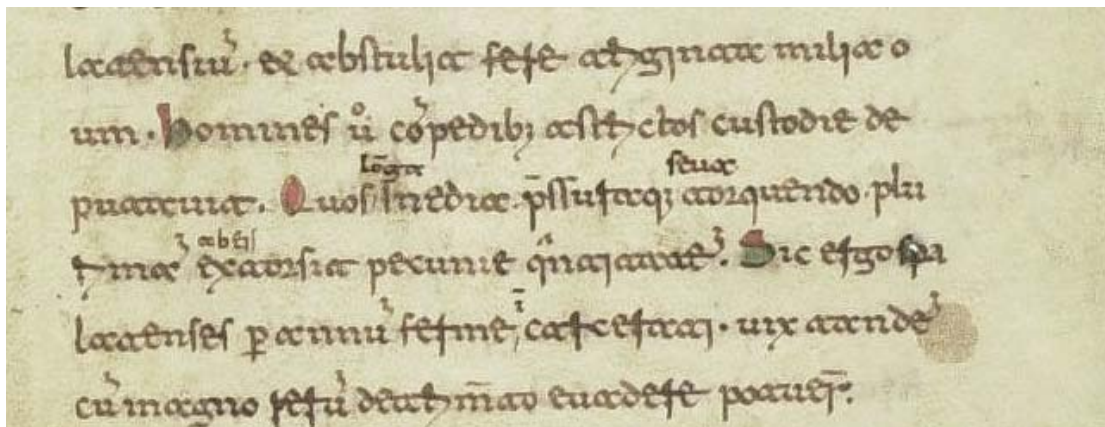 latensiū · et abstulit fere tͥginta milia o
um · Homines u͛o cōpedib; astͥctos custodie de
lōga seua
putauit. Quos inedia p̄ssuraq; torquendo plu
ab eis
rimā extorsit pecunie qͣntitatē. Sic ergo spa
ī
latenses ꝑ annū ferme carcerati · uix tandē
cū magno rerū detͥm̄to euadere potuer̄.